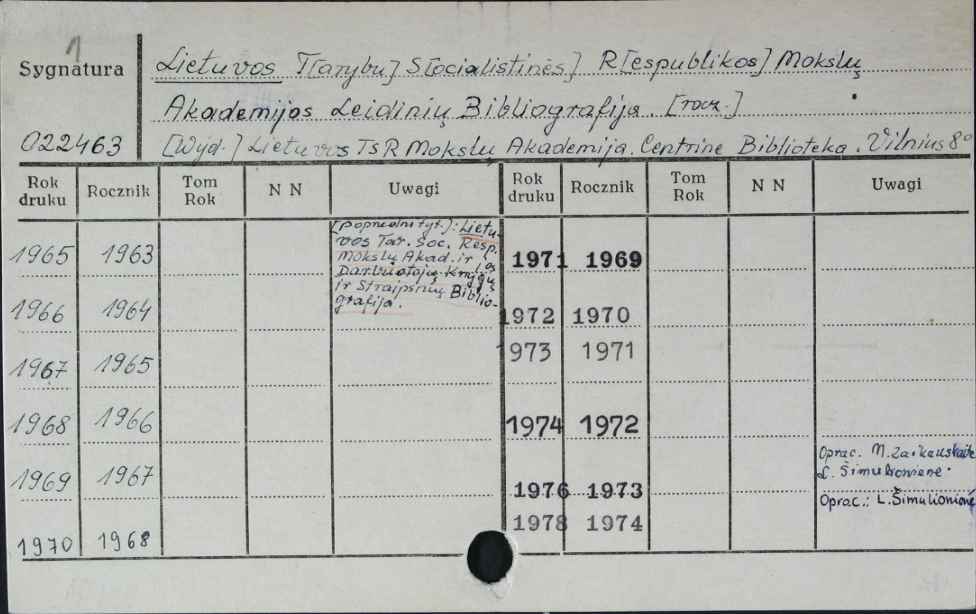 1
Sygnatura
022463
Lietuvos T[arybų] S[ocialistinės] R[espublikos] Mokslų
Akademijos Leidinių Bibliografija. [rocz.]
[Wyd.] Lietuvos TSR Mokslų Akademija. Centrinė Biblioteka. Vilnius 8°
Rok druku Rocznik Tom Rok N N Uwagi Rok druku Rocznik Tom Rok N N Uwagi
[poprzedni tyt.]: Lietu-
vos Tar. Soc. Resp.
Mokslų Akad. ir
Darbuotojų Knygų
ir Straipsnių Biblio-
grafija.
1965 1963
1966 1964
1967 1965
1968 1966
1969 1967
1970 1968
1971 1969
1972 1970
1973 1971
1974 1972
1976 1973
1978 1974
Oprac. M.
L. Šimulionienė
Oprac.: L. Šimulionienė